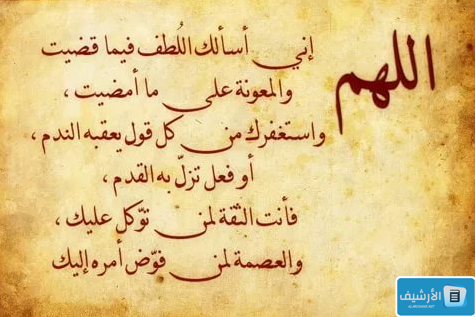 اللهم
إني أسألك اللُطف فيما قضيت
والمعونة على ما أمضيت ،
واستغفرك من كل قول يعقبه الندم ،
أو فعل تزلّ به القدم ،
فأنت الثقة لمن توّكل عليك ،
والعصمة لمن فوّض أمره إليك
الأرشيف